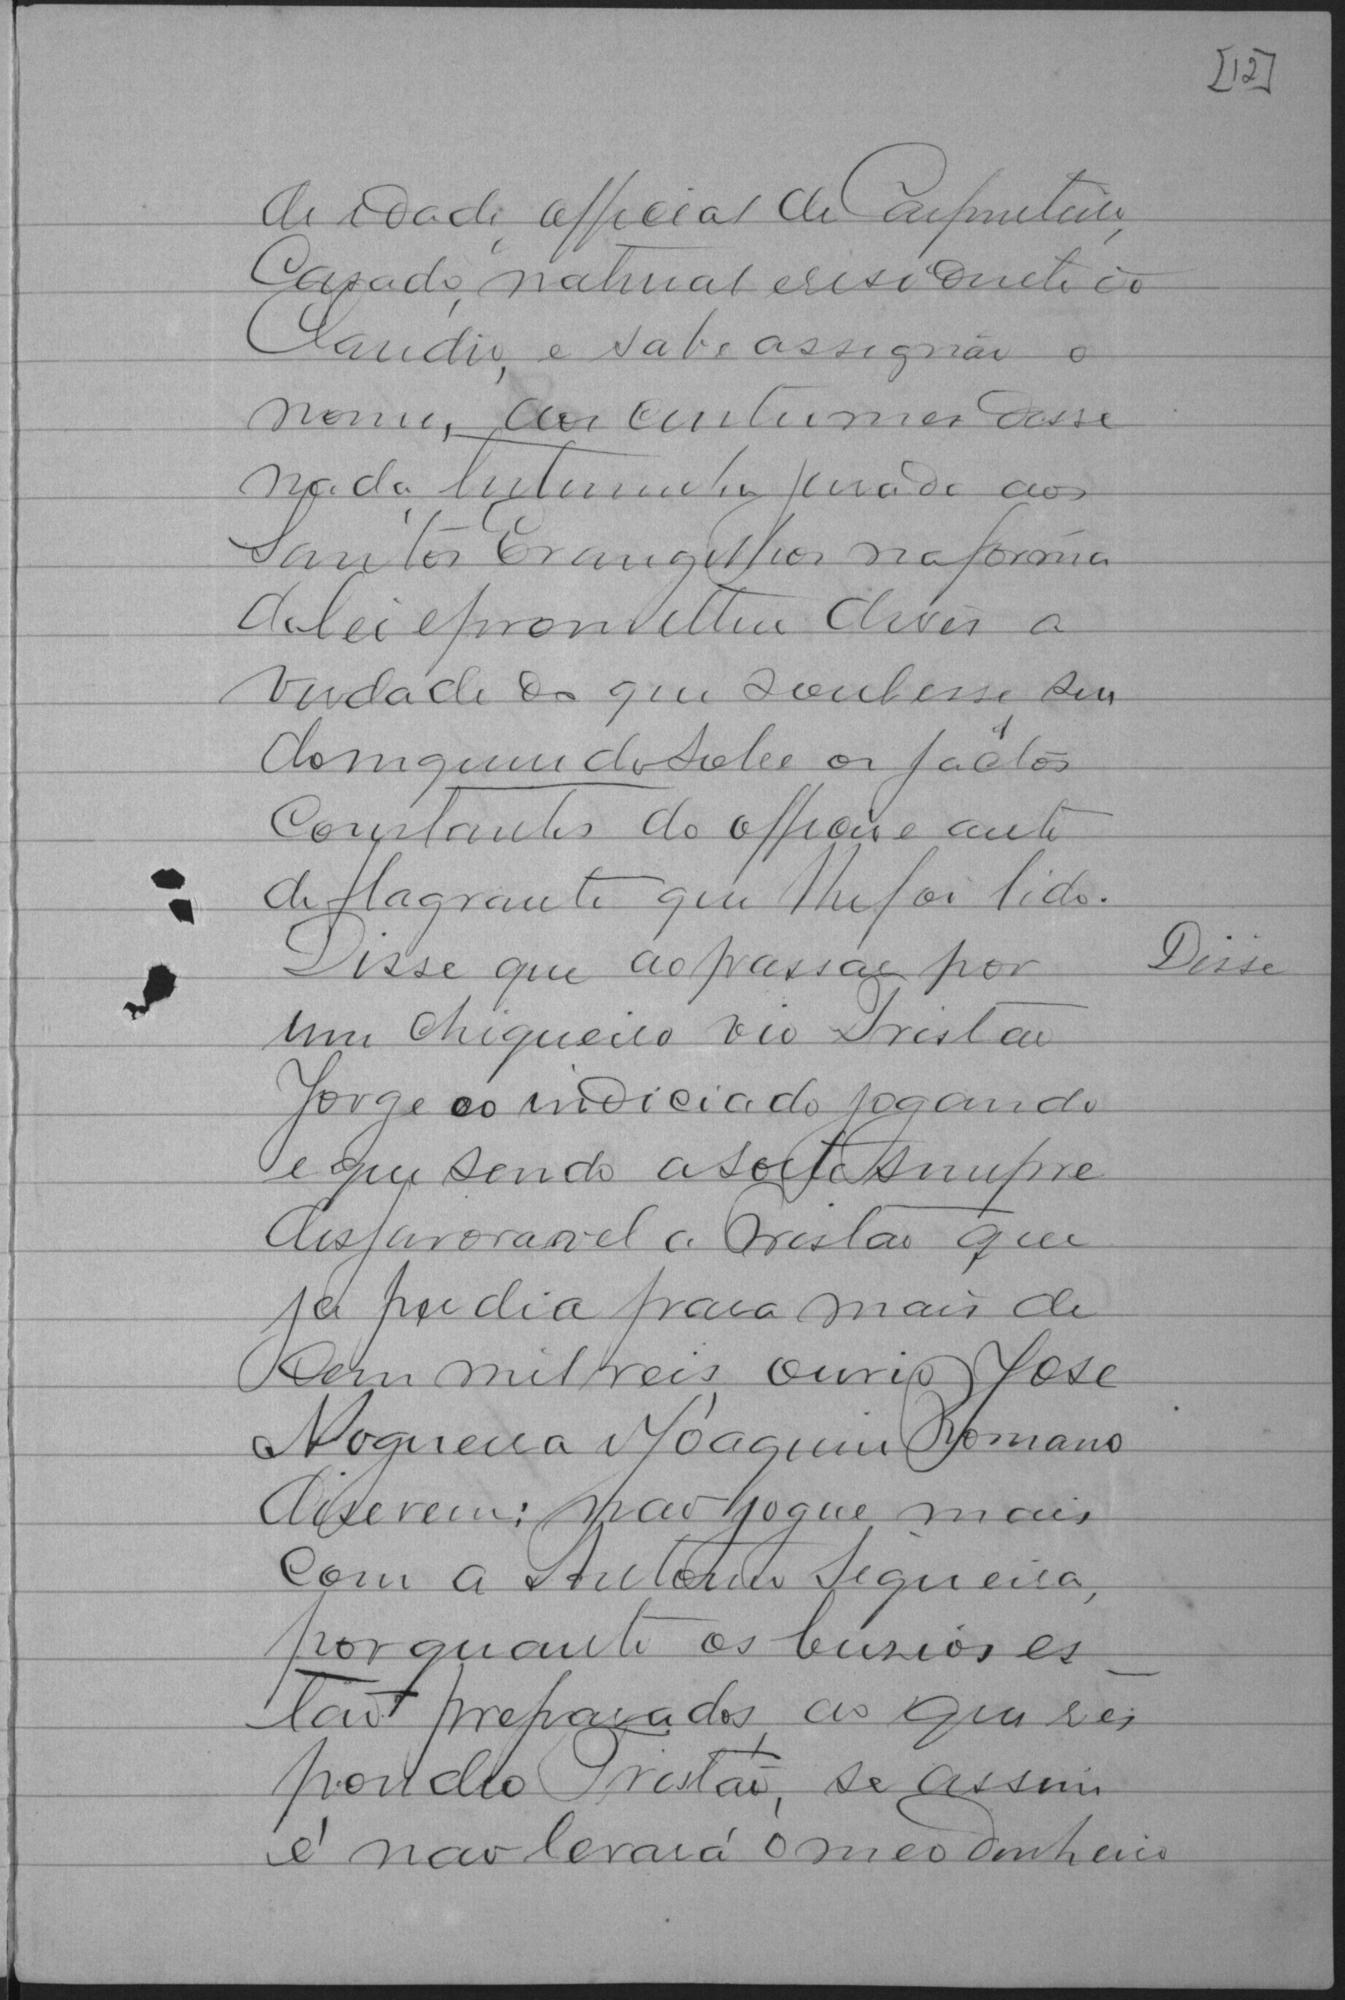 [12]
de idade, official de Carpinteiro,
Casado, natural e residente in
Claudio, e sabe assignar o
nome, aos custumes disse
nada, testemunha jurada aos
Santos Evangelhos na forma
da lei e prometteu diser a
verdade do que soubesse sen
do inquirido sobre os factos
Constantes do officio e auto
de flagrante que lhe foi lido.
Disse que ao passar por
Disse
um chiqueiro vio Tristão
Jorge eo indiciado jogando
e que sendo a sorte sempre
disfavoravel a Tristão que
ja perdia para mais de
Cem mil reis, ouvio José
Nogueira e Joaquim Romano
diserem: não jogue mais
com a Antonio Siqueira,
por quanto os busios es
tão preparados, ao que res
pondeo Tristão, se assim
é não levará o meo dinheiro